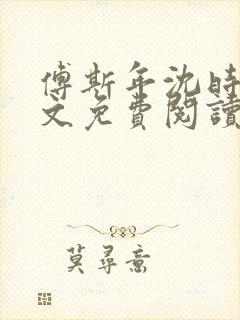 傅斯年沈時
文免費閱讀
莫尋喬